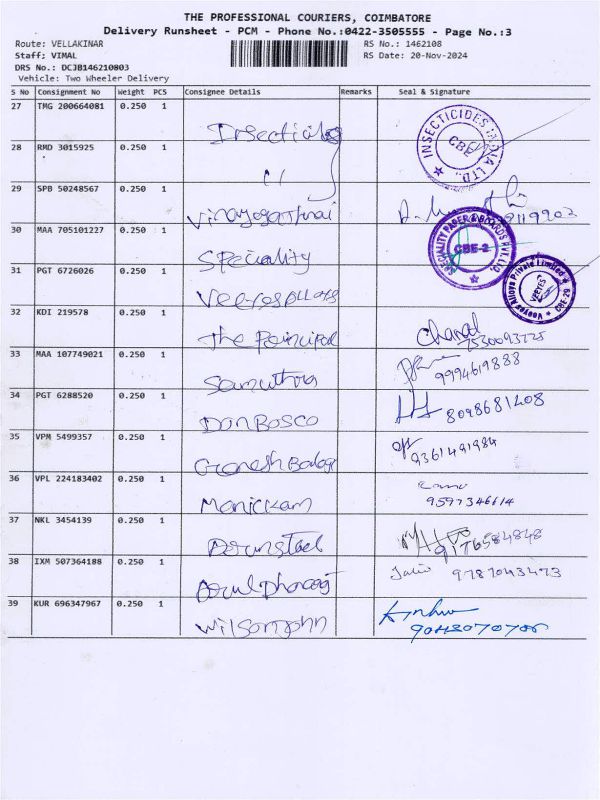 THE PROFESSIONAL COURIERS, COIMBATORE
Delivery Runsheet - PCM - Phone No.:0422-3505555 - Page No.:3
Route: VELLAKINAR
RS No.: 1462108
Staff; VIMAL
RS Date: 20-Nov-2024
DRS No.: DCJB146210803
Vehicle: Two Wheeler Delivery
S No Consignment No Weight PCS Consignee Details Remarks Seal & Signature
27 TMG 200664081 0.250 1 Insecticides INSECTICIDES INDIA LTD. CBE
28 RMD 3015925 0.250 1 "
29 SPB 50248567 0.250 1
30 MAA 705101227 0.250 1 Speciality SPECIALITY PAPER & BOARDS PVT. LTD. CBE-2
31 PGT 6726026 0.250 1 Veeyes Alloys Private Limited VEEYES CBE-29
32 KDI 219578 0.250 1 The Principal
33 MAA 107749021 0.250 1 9994619888
34 PGT 6288520 0.250 1 DON BOSCO 8098681208
35 VPM 5499357 0.250 1 Ganesh Balaji 9361491984
36 VPL 224183402 0.250 1 Manickam 9597346614
37 NKL 3454139 0.250 1 9176584848
38 IXM 507364188 0.250 1 9787043473
39 KUR 696347967 0.250 1 Wilson John